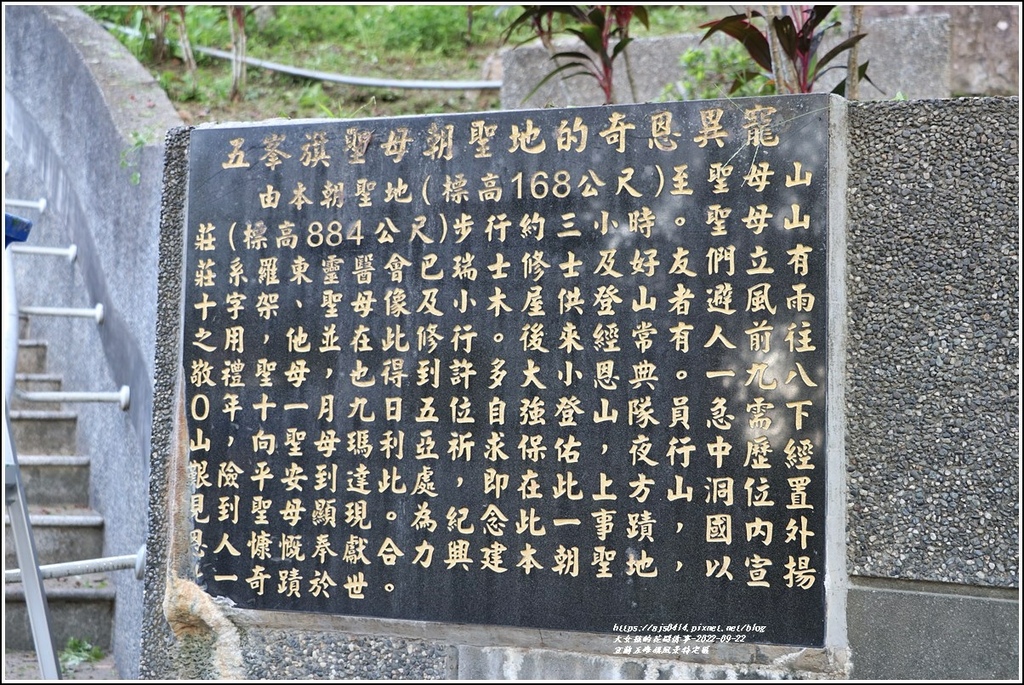 五峯旗聖母朝聖地的奇恩異寵
由本朝聖地(標高168公尺)至聖母山
莊(標高884公尺)步行約三小時。聖母山
莊系羅東靈醫會巴瑞士修士及好友們立有
十字架、聖母像及小木屋供登山者避風雨
之用,他並在此修行。後來經常有人前往
敬禮聖母,也得到許多大小恩典。一九八
0年十一月九日五位自強登山隊員急需下
山,向聖母瑪利亞祈求保佑,夜行中歷經
艱險平安到達此處,即在此上方山洞位置
見到聖母顯現。為紀念此一事蹟,國內外
恩人慷慨奉獻合力興建本朝聖地,以宣揚
一奇蹟於世。
https://sjs0414.pixnet.net/blog
大女孩的花花情事-2022-09-22
宜蘭五峰旗風景特定區